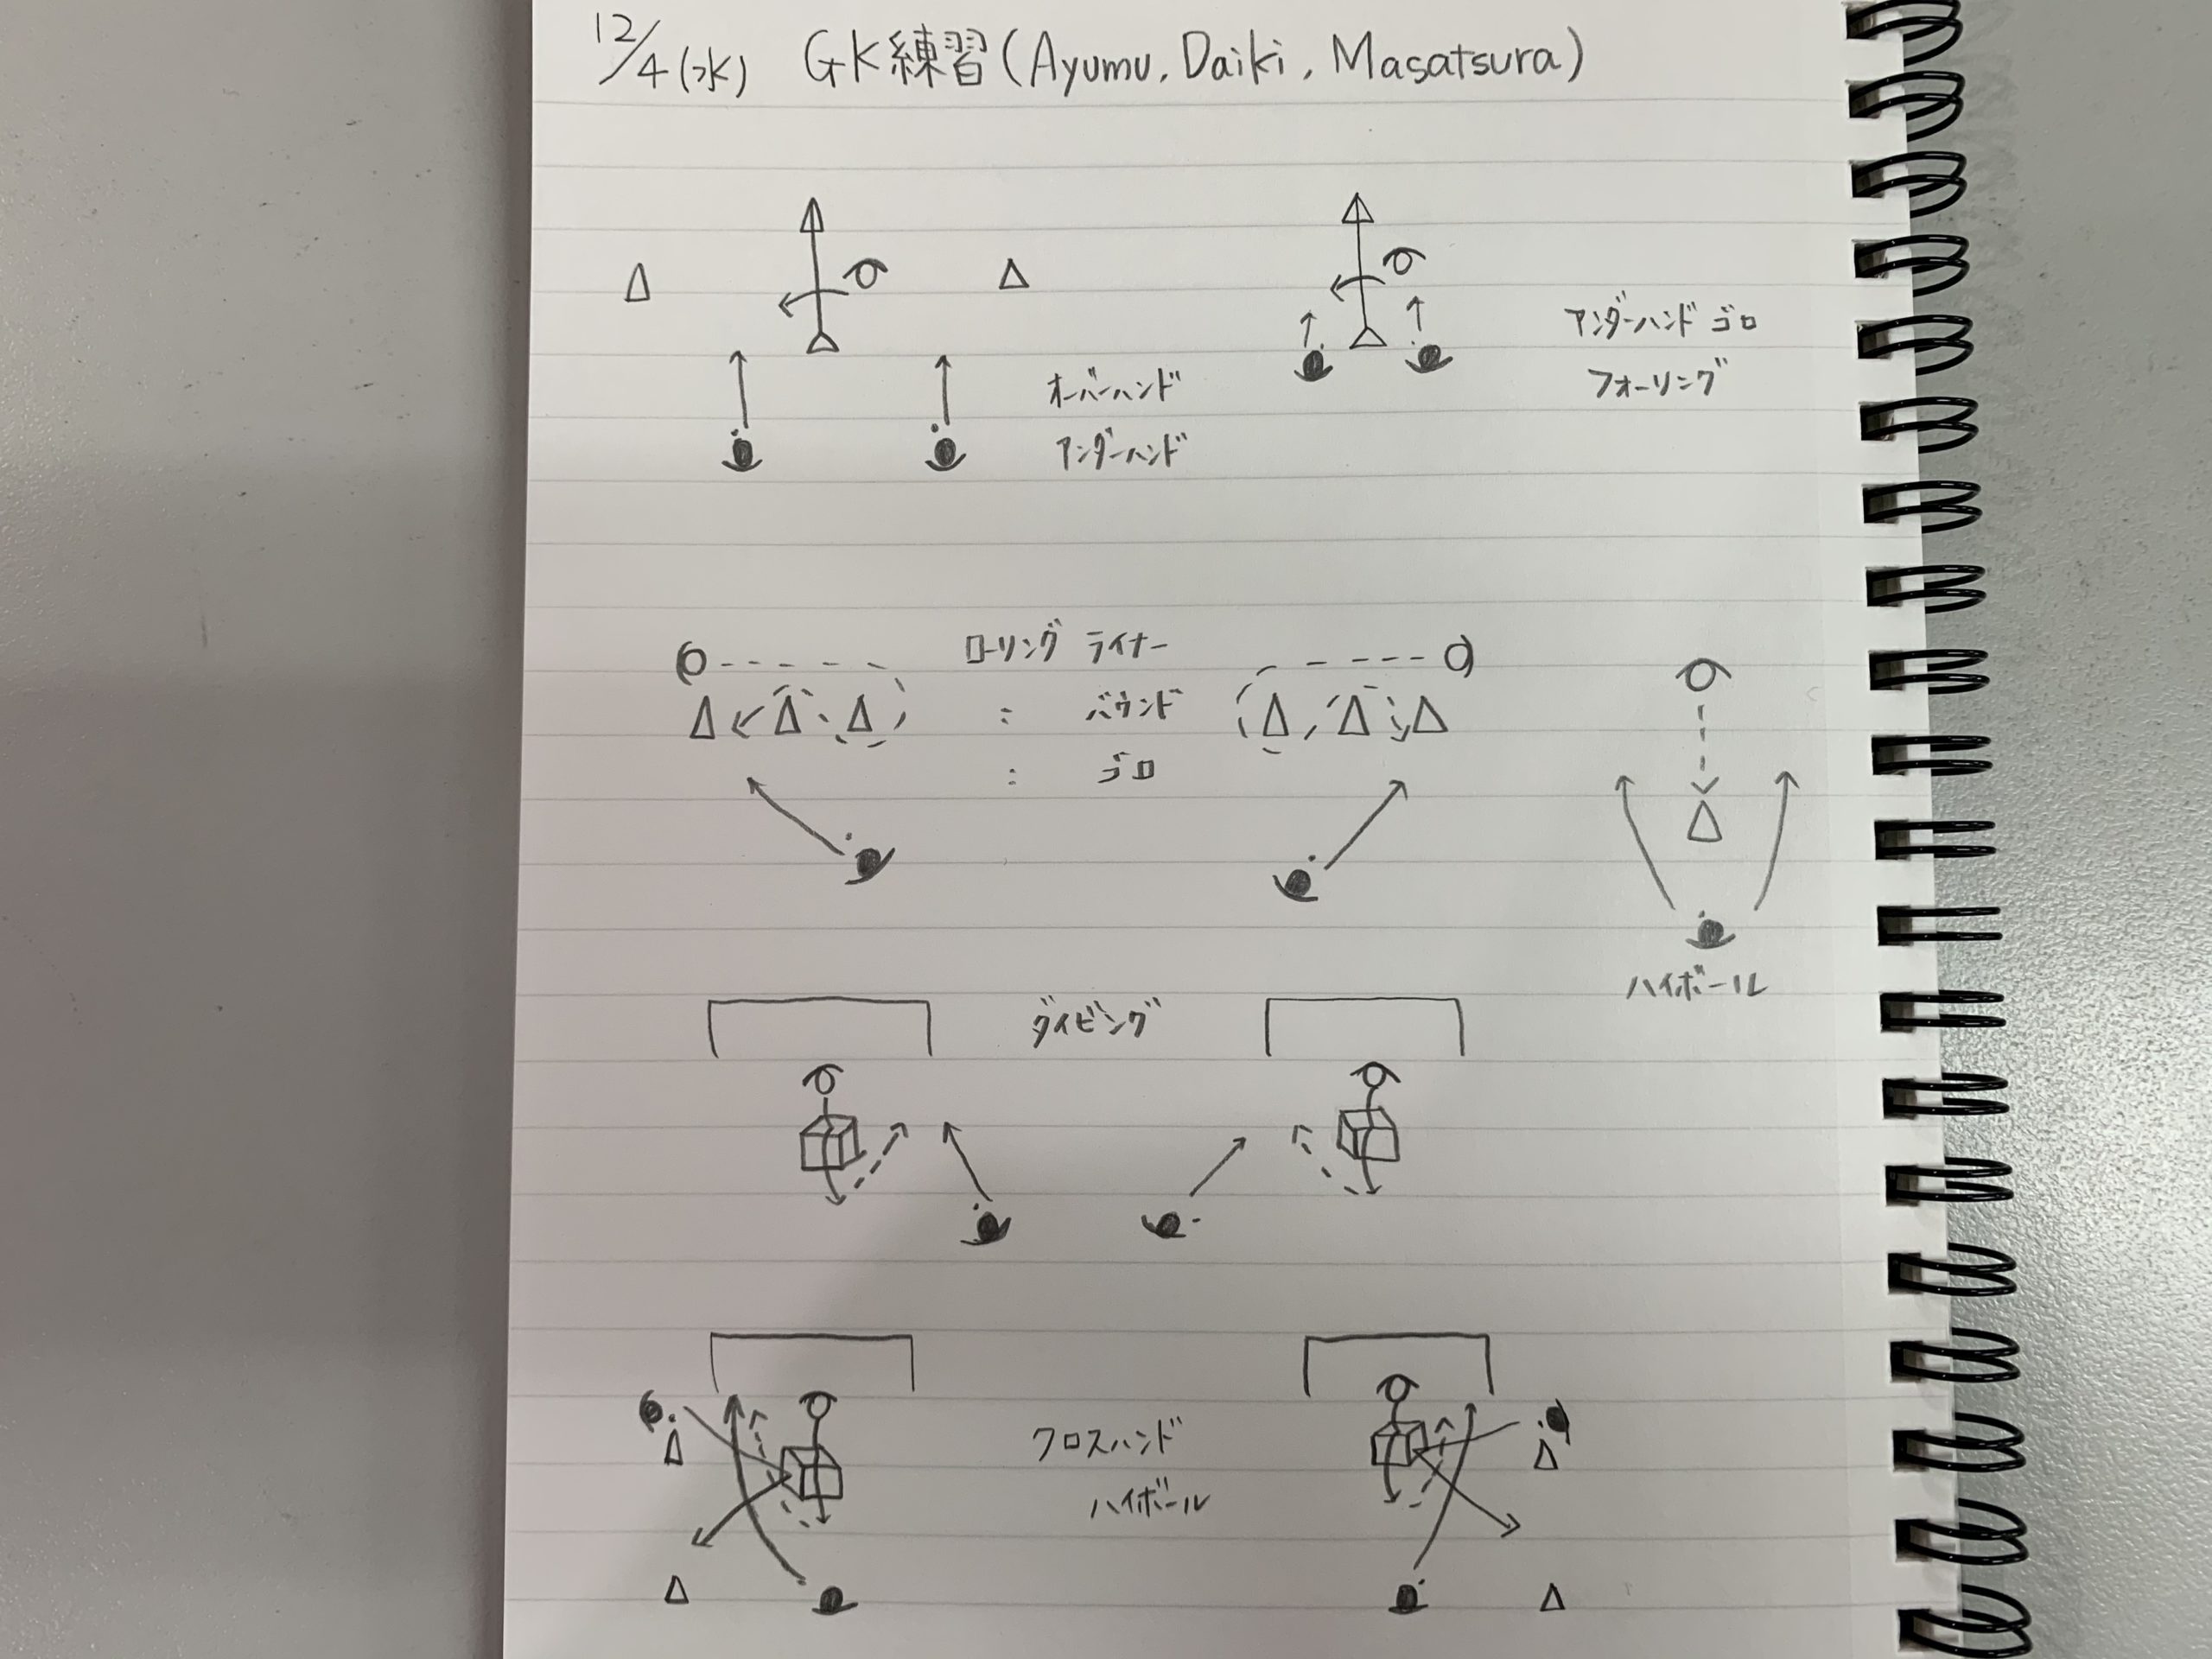 12/4(水) GK練習(Ayumu, Daiki, Masatsura)
オーバーハンド
アンダーハンド
アンダーハンド ゴロ
フォーリング
ローリング ライナー
: バウンド
: ゴロ
ハイボール
ダイビング
クロスハンド
ハイボール